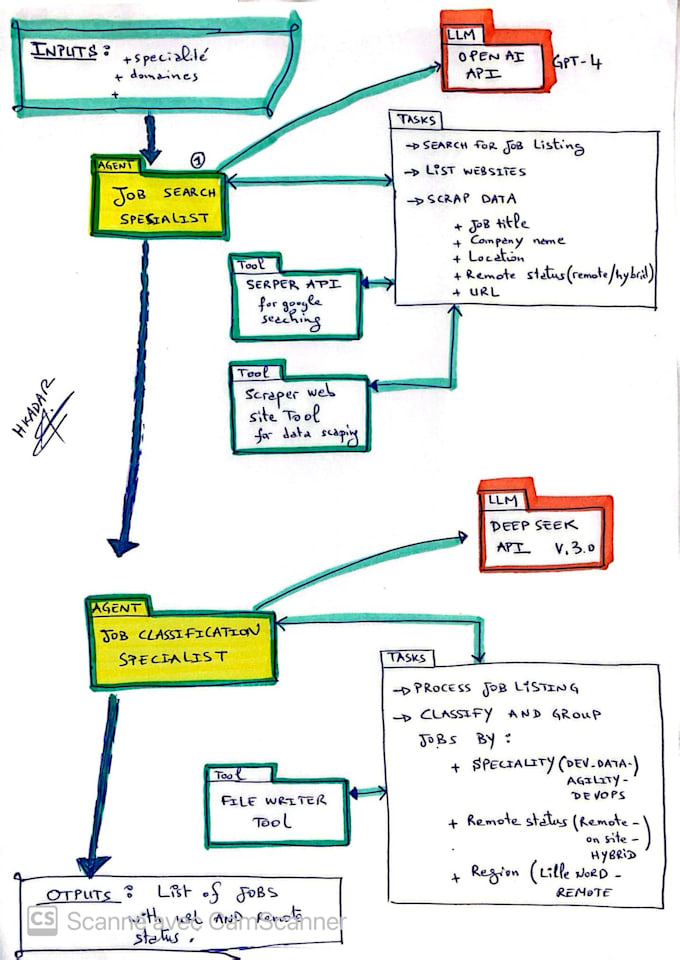 INPUTS : + specialité
+ domaines
+
LLM
OPEN AI
API
GPT-4
AGENT
①
JOB SEARCH
SPESIALIST
TASKS
→ SEARCH FOR JOB Listing
→ LIST WEBSITES
→ SCRAP DATA
+ Job title
+ Company name
+ Location
+ Remote status (remote/hybrid)
+ URL
Tool
SERPER API
for google
seaching
Tool
Scraper web
site Tool
for data scaping
HKADAR
LLM
DEEP SEEK
API V.3.0
AGENT
JOB CLASSIFICATION
SPECIALIST
TASKS
→ PROCESS JOB LISTING
→ CLASSIFY AND GROUP
JOBS BY :
+ SPECIALITY (DEV-DATA-)
AGILITY-
DEVOPS
+ Remote status (Remote-)
on site-
HYBRID
+ Region (Lille NORD-
REMOTE
Tool
FILE WRITER
TOOL
OTPUTS : List of JOBS
with url AND remote
status.
CS Scanné avec CamScanner